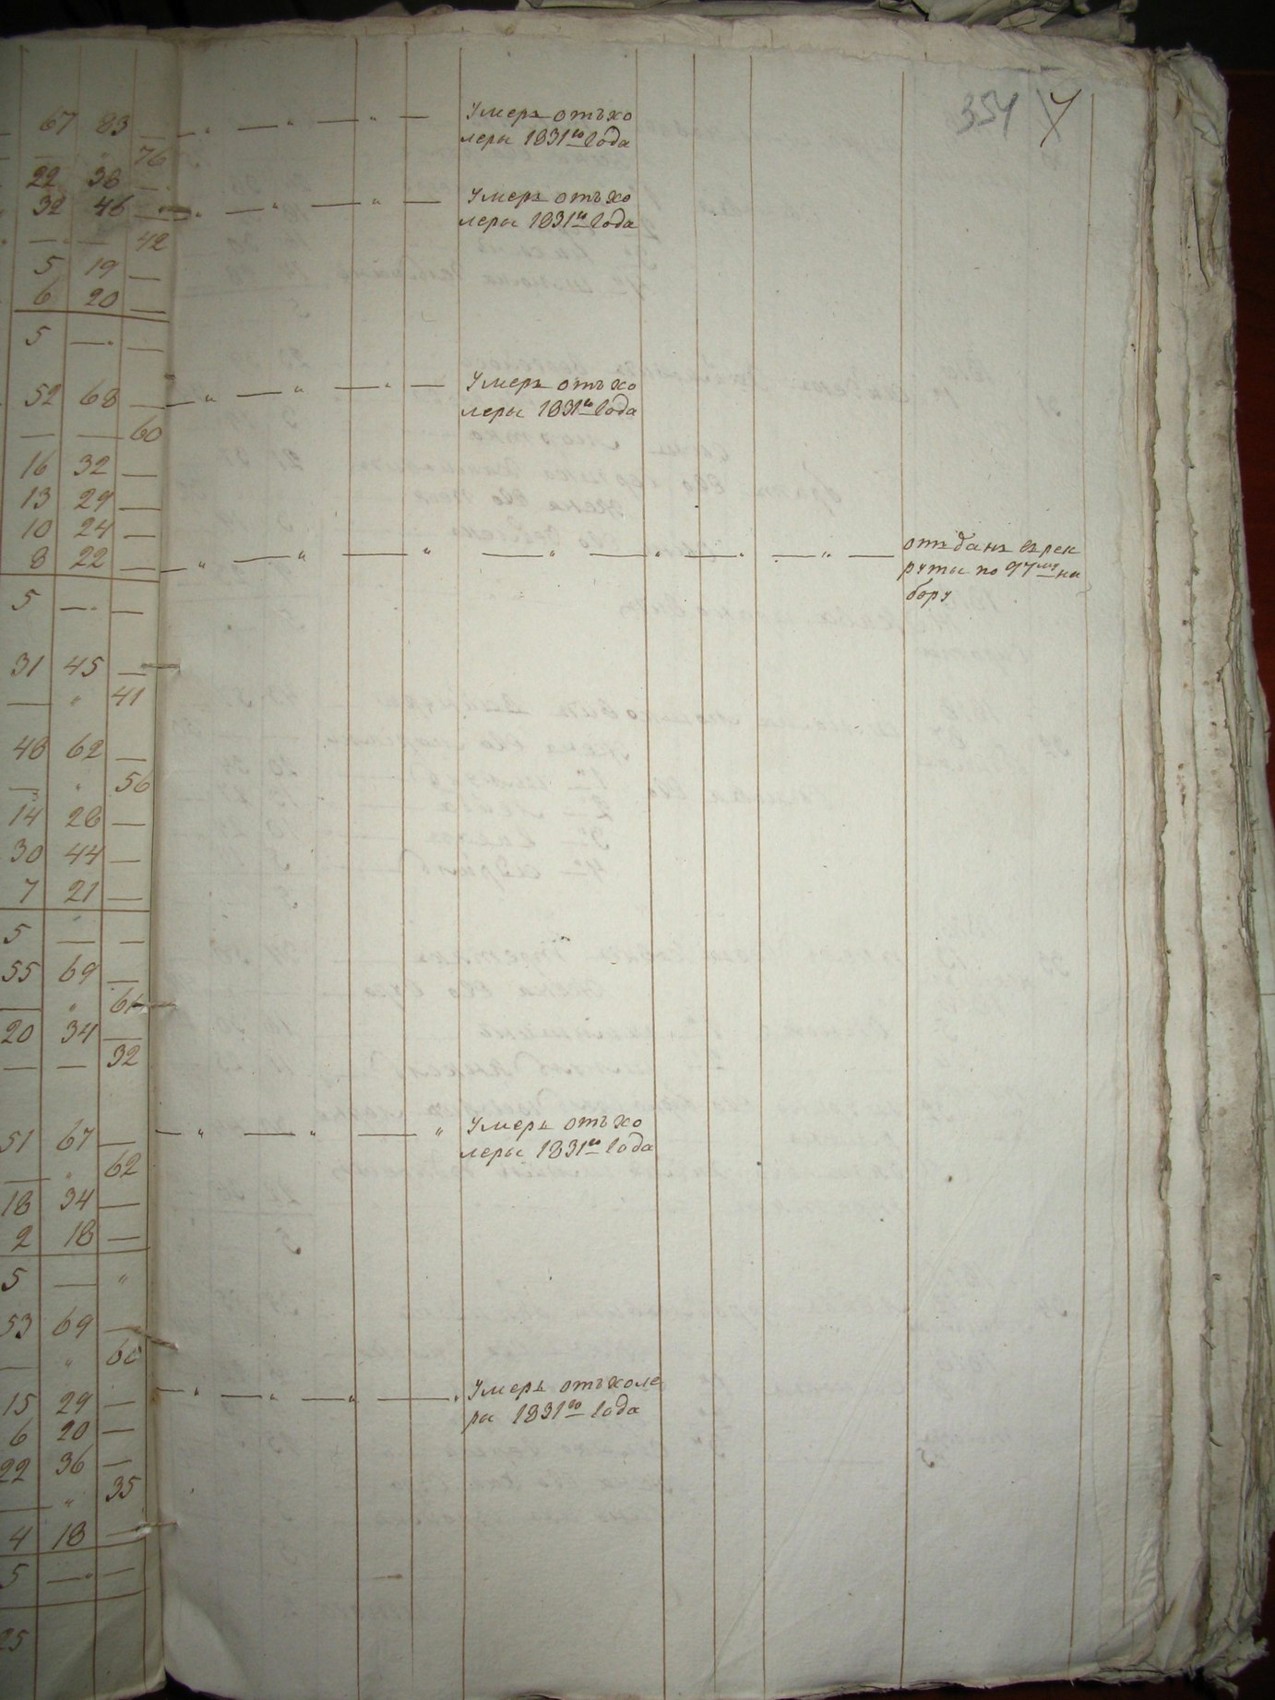 354 7
67 83 —
76
22 38 —
32 46 —
— — 42
5 19 —
6 20 —
5 — —
52 68 —
— — 60
16 32 —
13 29 —
10 24 —
8 22 —
5 — —
31 45 —
— " 41
48 62 —
— " 56
14 28 —
30 44 —
7 21 —
5 — —
55 69 —
— "
20 34 —
— — 32
51 67 —
— " 62
18 34 —
2 18 —
5 — "
53 69 —
— "
15 29 —
6 20 —
22 36 —
— " 35
4 18 —
5 — —
25
Умеръ отъ хо
леры 1831го года
Умеръ отъ хо
леры 1831го года
Умеръ отъ хо
леры 1831го года
отъданъ въ рек
руты по 97му на
бору
Умеръ отъ хо
леры 1831го года
Умеръ отъ холе
ры 1831го года